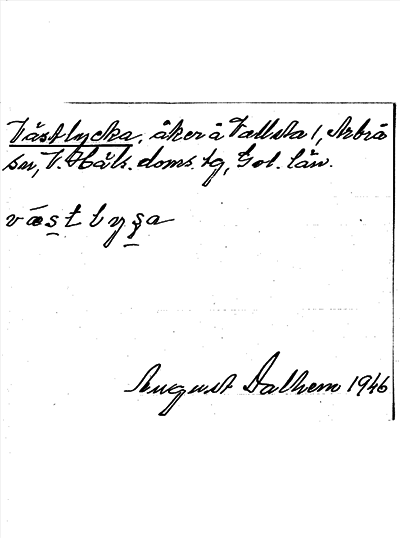 Västlycka, åker å Vallsta 1, Arbrå
sn, V. Häls. doms. tg, Gvl. län.
væ̀s̠tlys̠a
August Dalhem 1946